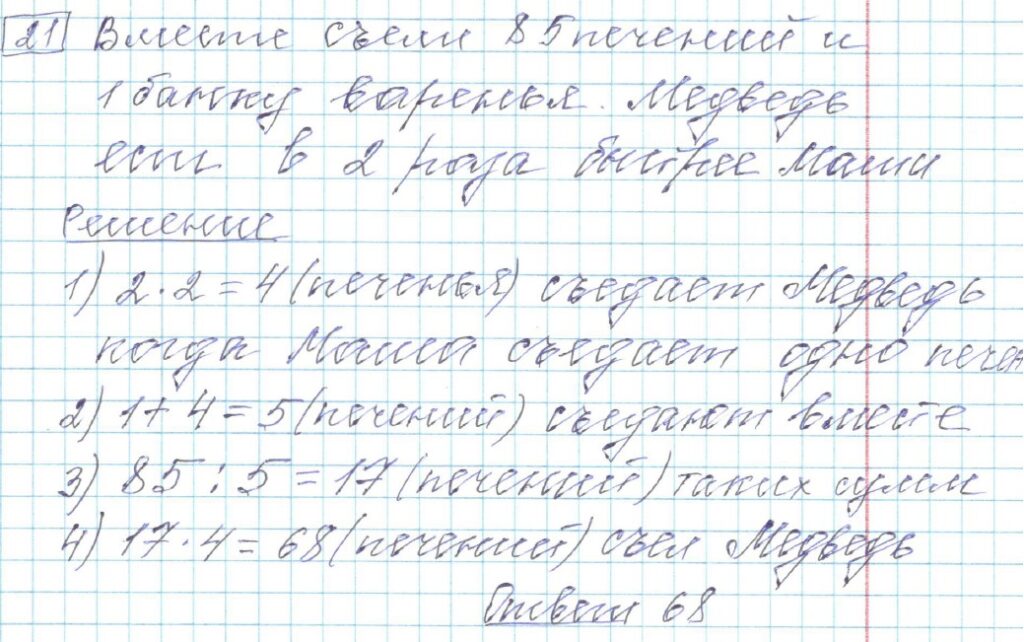 21 Вместе съели 85 печений и
1 банку варенья. Медведь
ест в 2 раза быстрее Маши
Решение
1) 2·2=4(печенья) съедает Медведь
когда Маша съедает одно печен
2) 1+4=5(печений) съедают вместе
3) 85:5=17(печений) таких сумм
4) 17·4=68(печений) съел Медведь
Ответ 68